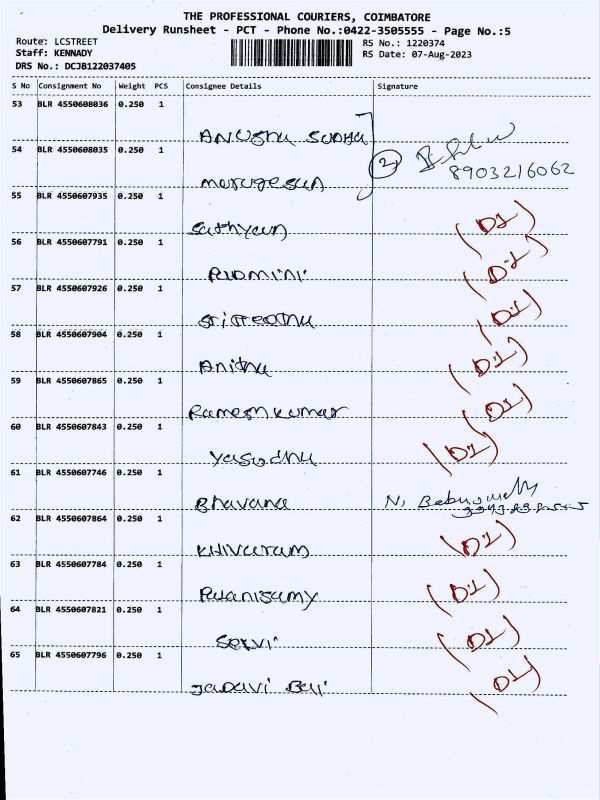 THE PROFESSIONAL COURIERS, COIMBATORE
Delivery Runsheet - PCT - Phone No.:0422-3505555 - Page No.:5
Route: LCSTREET RS No.: 1220374
Staff: KENNADY RS Date: 07-Aug-2023
DRS No.: DCJB122037405
S No Consignment No Weight PCS Consignee Details Signature
53 BLR 4550608036 0.250 1
Anusha Sudha
54 BLR 4550608035 0.250 1 2
8903216062
Murugesun
55 BLR 4550607935 0.250 1
Sathyan (D1)
56 BLR 4550607791 0.250 1
Padmini (D1)
57 BLR 4550607926 0.250 1
(D1)
58 BLR 4550607904 0.250 1
Anitha (D1)
59 BLR 4550607865 0.250 1
Rameshkumar (D1)
60 BLR 4550607843 0.250 1
Yasodha (D1)
61 BLR 4550607746 0.250 1
Bhavana N.
62 BLR 4550607864 0.250 1
(D1)
63 BLR 4550607784 0.250 1
Palanisamy (D1)
64 BLR 4550607821 0.250 1
Selvi (D1)
65 BLR 4550607796 0.250 1
(D1)